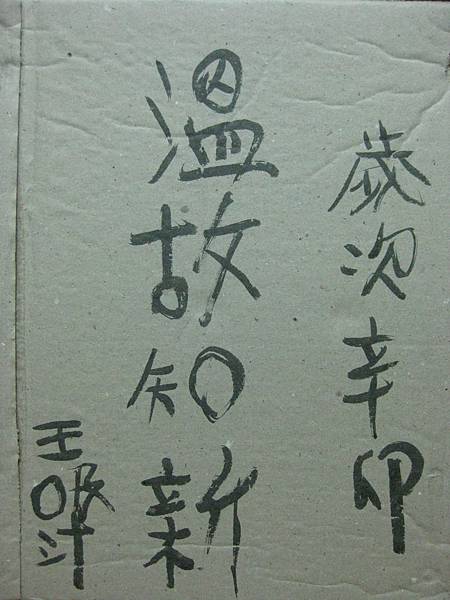 歲次辛卯
溫故知新
王